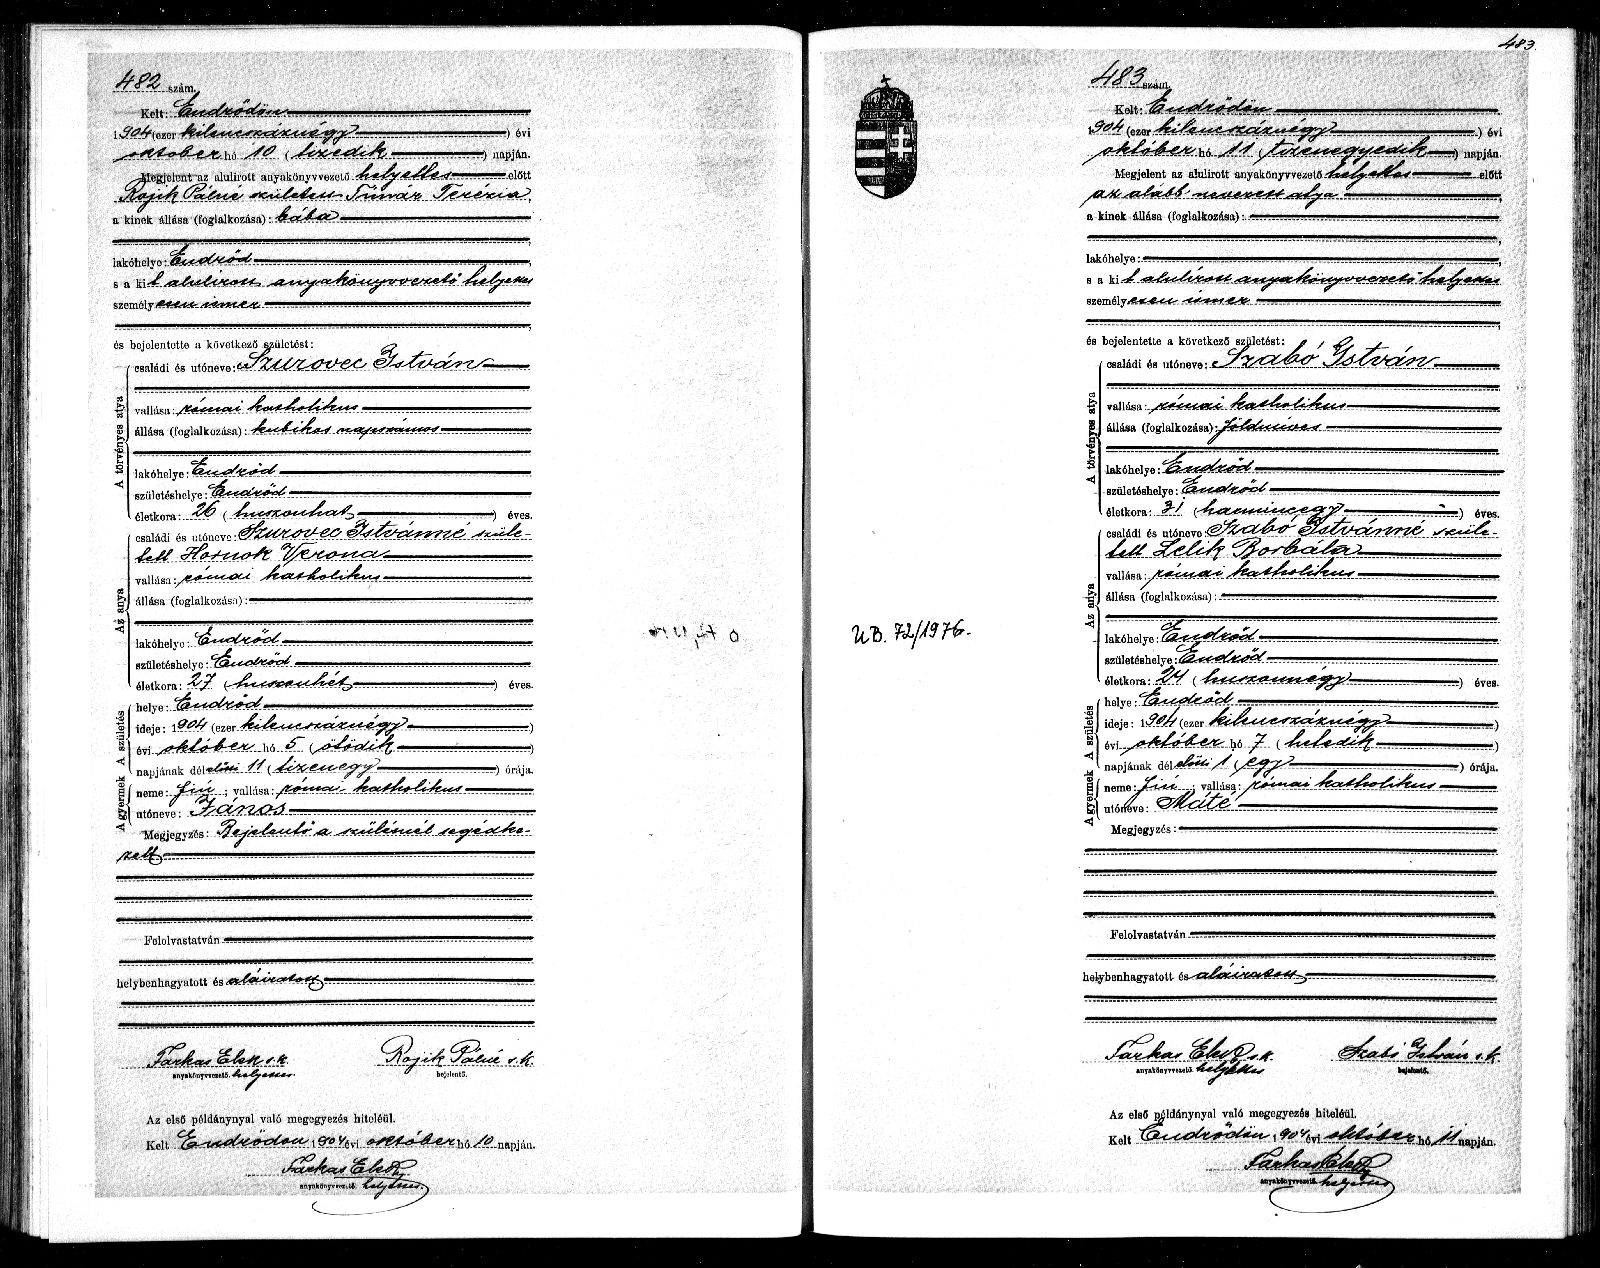 482 szám.
Kelt: Endrődön
1904 (ezer kilencszáznégy) évi
október hó 10 (tizedik) napján.
Megjelent az alulirott anyakönyvvezető helyettes előtt
Rojik Pálné született Timár Terézia,
a kinek állása (foglalkozása): bába
lakóhelye: Endrőd
s a kit alulírott anyakönyvvezető helyettes
személyesen ismer
és bejelentette a következő születést:
A törvényes atya
családi és utóneve: Szurovec István
vallása: római katholikus
állása (foglalkozása): kubikos napszámos
lakóhelye: Endrőd
születéshelye: Endrőd
életkora: 26 (huszonhat) éves.
Az anya
családi és utóneve: Szurovec Istvánné szüle-
tett Hornok Verona
vallása: római katholikus
állása (foglalkozása):
lakóhelye: Endrőd
születéshelye: Endrőd
életkora: 27 (huszonhét) éves.
A születés
helye: Endrőd
ideje: 1904 (ezer kilencszáznégy)
évi október hó 5 (ötödik)
napjának délelőtti 11 (tizenegy) órája.
A gyermek
neme: fiú; vallása: római katholikus
utóneve: János
Megjegyzés: Bejelentő a szülésnél segédke-
zett
Felolvastatván
helybenhagyatott és aláiratott
Farkas Elek s.k. Rojik Pálné s.k.
anyakönyvvezető. helyettes bejelentő.
Az első példánynyal való megegyezés hiteléül.
Kelt Endrődön 1904 évi október hó 10 napján.
Farkas Elek
anyakönyvvezető. helyettes.
483.
483 szám.
Kelt: Endrődön
1904 (ezer kilencszáznégy) évi
október hó 11 (tizenegyedik) napján.
Megjelent az alulirott anyakönyvvezető helyettes előtt
az alább nevezett atya,
a kinek állása (foglalkozása):
lakóhelye:
s a kit alulírott anyakönyvvezető helyettes
személyesen ismer
és bejelentette a következő születést:
A törvényes atya
családi és utóneve: Szabó István
vallása: római katholikus
állása (foglalkozása): földmíves
lakóhelye: Endrőd
születéshelye: Endrőd
életkora: 31 (harmincegy) éves.
Az anya
családi és utóneve Szabó Istvánné szüle-
tett Lelik Borbála
vallása: római katholikus
állása (foglalkozása):
lakóhelye: Endrőd
születéshelye: Endrőd
életkora: 24 (huszonnégy) éves.
A születés
helye: Endrőd
ideje: 1904 (ezer kilencszáznégy)
évi október hó 7 (hetedik)
napjának délelőtti 1 (egy) órája.
A gyermek
neme: fiú; vallása: római katholikus
utóneve: Máté
Megjegyzés:
Felolvastatván
helybenhagyatott és aláiratott
Farkas Elek s.k. Szabó István s.k.
anyakönyvvezető. helyettes bejelentő.
Az első példánynyal való megegyezés hiteléül.
Kelt Endrődön 1904 évi október hó 11 napján.
Farkas Elek
anyakönyvvezető. helyettes
UB. 72/1976.